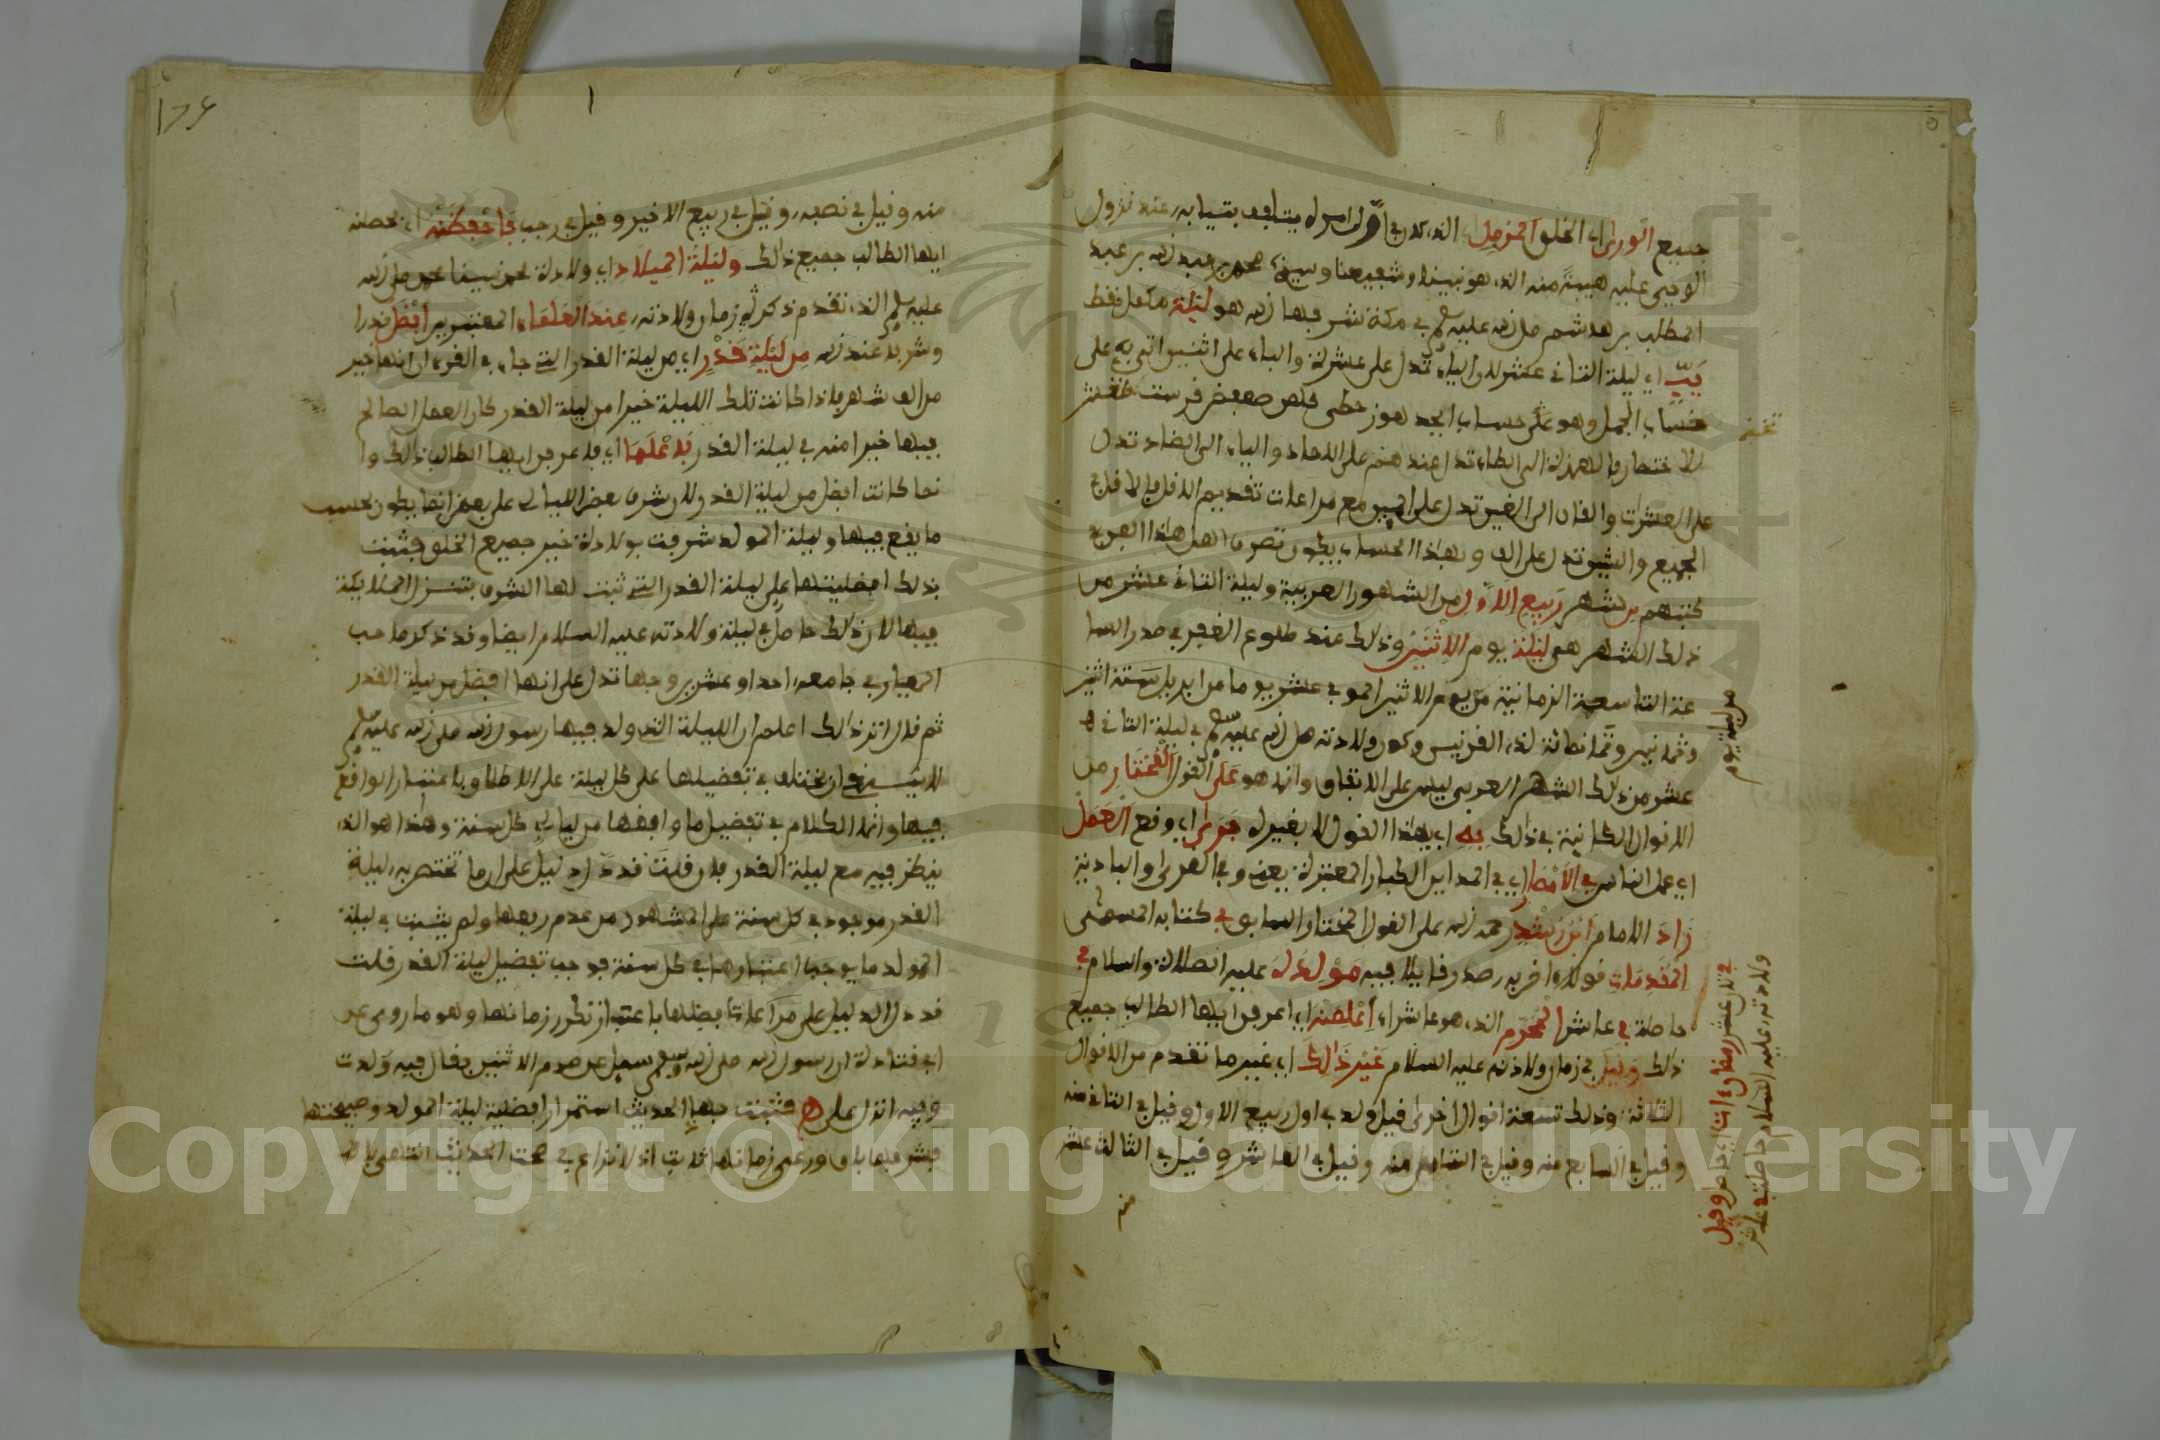 جميع الورى اي الخلق المزمل الذي كان في اول امره يتلفف بثيابه عند نزول
الوحي عليه هيبة منه الذي هو نبينا وشفيعنا وسيدنا محمد بن عبد الله بن عبد
المطلب بن هاشم صلى الله عليه وسلم في مكة شرفها الله هو ليلة مكمل فقط
يب اي ليلة الثاني عشر لان الياء تدل على عشرة والباء على اثنين اتى به على
حساب الجمل وهو على حساب ابجد هوز حطي كلمن صعفض قرست ثخذ ظغش
الاختصار فالهمزة الى الطاء تدل عندهم على الاحاد والياء الى الضاد تدل
على العشرات والقاف الى الغين تدل على المئين مع مراعات تقديم الاقل فالاقل في
الجميع والشين تدل على الف وبهذا الحساب يكون تصرف اهل هذا الفن في
كتبهم من شهر ربيع الاول من الشهور العربية وليلة الثاني عشر من
ذلك الشهر هي ليلة يوم الاثنين وذلك عند طلوع الفجر في صدر السا
عة التاسعة الزمانية من يوم الاثنين الموفي عشرين يوما من ابريل سنة اثنين
وثمانين وثمانمائة لذي القرنين وكون ولادته صلى الله عليه وسلم في ليلة الثاني
عشر من ذلك الشهر العربي ليس على الاتفاق وانما هو على القول المختار من
الاقوال الكائنة في ذلك به اي بهذا القول لا بغيره جرى اي وقع العمل
اي عمل الناس في الامصار اي في المداين الكبار المعتبرة يعني وفي القرى والبادية
زاد الامام ابن رشد رحمه الله على القول المختار السابق في كتابه المسمى
المقدمات قولا اخر به صدر قايلا فيه مولده عليه الصلاة والسلام في
حاصلة في عاشر المحرم الذي هو عاشراء اعلمنه اي اعرفن ايها الطالب جميع
ذلك وقيل في زمان ولادته عليه السلام غير ذلك اي غير ما تقدم من الاقوال
الثلاثة وذلك تسعة اقوال اخرى قيل ولد في اول ربيع الاول وقيل في الثاني منه
وقيل في السابع منه وقيل في الثامن منه وقيل في العاشر وقيل في الثالث عشر
منه
من ليلة يوم
في ثاني عشر رمضان اتى اي حاصل وقيل
ولادته عليه السلام حاصلة في عاشر
١٧٤
منه وقيل في نصفه وقيل في ربيع الاخير وقيل في رجب فاحفظنه اي حصنه
ايها الطالب جميع ذلك وليلة الميلاد اي ولادة نبينا محمد صلى الله
عليه وسلم الذي تقدم ذكر زمان ولادته عند العلماء المعتبرين افضل قدرا
وشرفا عند الله من ليلة قدر اي من ليلة القدر التي جاء في القرءان انها خير
من الف شهر فاذا كانت تلك الليلة خيرا من ليلة القدر كان العمل الصالح
فيها خيرا منه في ليلة القدر فاعلما اي فاعرفن ايها الطالب ذلك وا
نما كانت افضل من ليلة القدر لان شرف بعض الليالي على بعض انما يكون بحسب
ما يقع فيها وليلة المولد شرفت بولادة خير جميع الخلق فثبت
بذلك افضليتها على ليلة القدر التي ثبت لها الشرف بتنزل الملايكة
فيها لان ذلك حاصل في ليلة ولادته عليه السلام ايضا وقد ذكر صاحب
المعيار في جامعه احدا وعشرين وجها تدل على انها افضل من ليلة القدر
ثم قال اثر ذلك اعلم ان الليلة التي ولد فيها رسول الله صلى الله عليه وسلم
لا ينبغي ان يختلف في تفضيلها على كل ليلة على الاطلاق باعتبار الواقع
فيها وانما الكلام في تفضيل ما وافقها من ليالي كل سنة وهذا هو الذي
ينظر فيه مع ليلة القدر فان قلت قد دل دليل على ان ما تختص به ليلة
القدر موجود في كل سنة على المشهور من عدم رفعها ولم يثبت في ليلة
المولد ما يوجب اعتبارها في كل سنة فوجب تفضيل ليلة القدر قلت
قد دل الدليل على مراعات فضلها باعتبار تكرر زمانها وهو ما روي عن
ابي قتادة ان رسول الله صلى الله عليه وسلم سيل عن صوم الاثنين فقال فيه ولدت
وفيه انزل علي فثبت بهذا الحديث استمرار افضلية ليلة المولد وصبيحتها